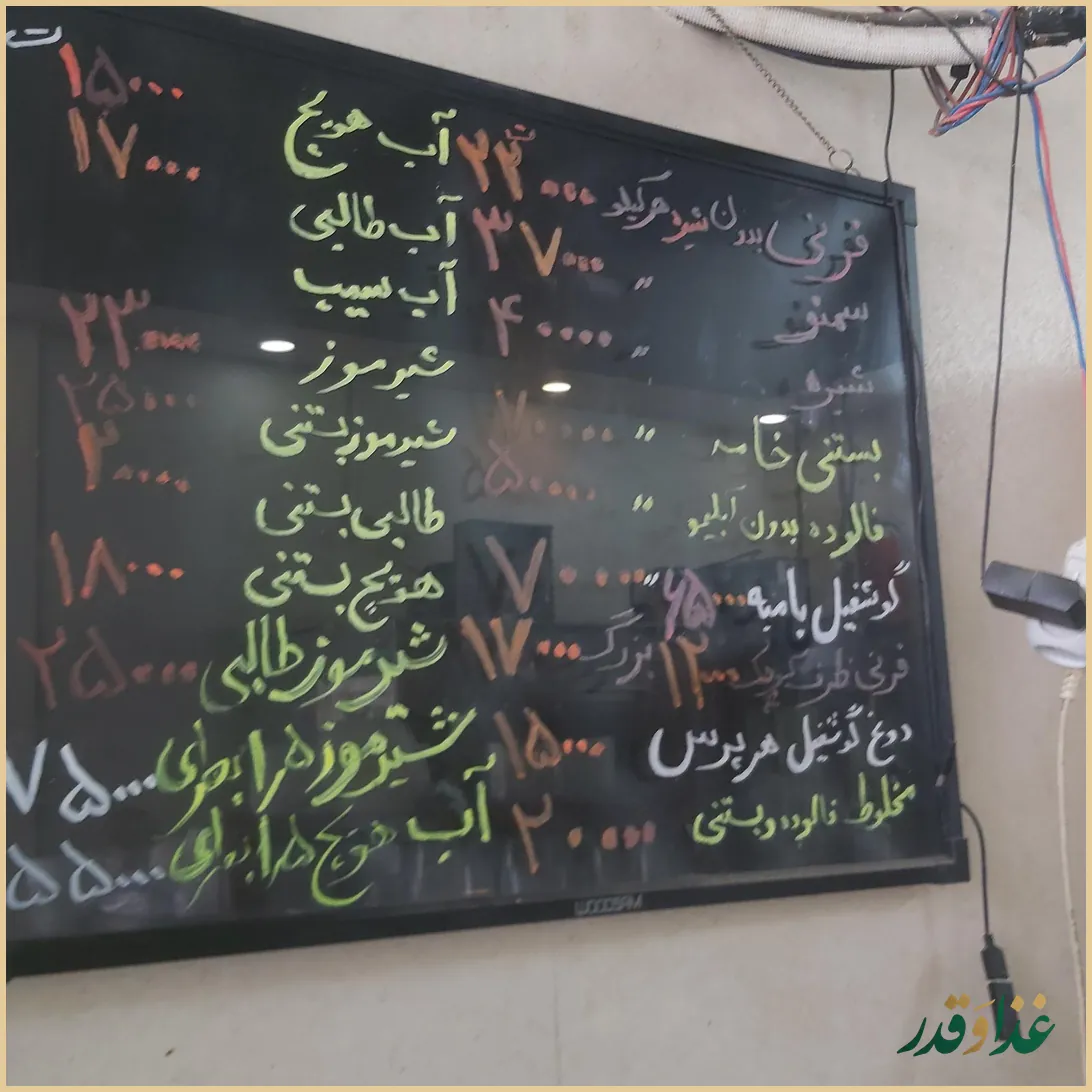 فرنی بدون شیره هر کیلو ۲۳۰۰۰ ت
سمنو " ۳۷۰۰۰
شیره " ۴۰۰۰۰
بستنی خامه " ۷۰۰۰۰
فالوده بدون آبلیمو " ۵۰۰۰۰
گوشفیل بامیه ۶۵۰۰۰ " ۷۰۰۰۰
فرنی ظرف کوچک ۱۲۰۰۰ بزرگ ۱۷۰۰۰
دوغ گوشفیل هر پرس ۱۵۰۰۰
مخلوط فالوده و بستنی ۲۰۰۰۰
آب هویج ۱۵۰۰۰ ت
آب طالبی ۱۷۰۰۰
آب سیب
شیر موز ۲۳۰۰۰
شیر موز بستنی ۲۵۰۰۰
طالبی بستنی ۲۰۰۰۰
هویج بستنی ۱۸۰۰۰
شیر موز طالبی ۲۵۰۰۰
شیر موز ۱/۵ بطری ۷۵۰۰۰
آب هویج ۱/۵ بطری ۵۵۰۰۰
غذا و قدر